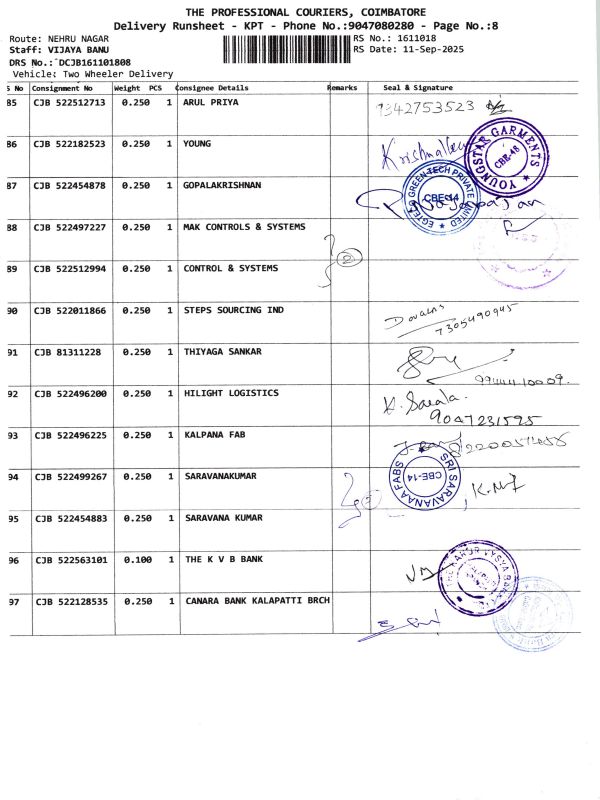 THE PROFESSIONAL COURIERS, COIMBATORE
Delivery Runsheet - KPT - Phone No.:9047080280 - Page No.:8
Route: NEHRU NAGAR
RS No.: 1611018
Staff: VIJAYA BANU
RS Date: 11-Sep-2025
DRS No.: DCJB161101808
Vehicle: Two Wheeler Delivery
S No Consignment No Weight PCS Consignee Details Remarks Seal & Signature
85 CJB 522512713 0.250 1 ARUL PRIYA 9342753523
86 CJB 522182523 0.250 1 YOUNG
YOUNGSTAR GARMENTS CBE-48
87 CJB 522454878 0.250 1 GOPALAKRISHNAN
GREEN-TECH PRIVATE LIMITED CBE-14
88 CJB 522497227 0.250 1 MAK CONTROLS & SYSTEMS
2
89 CJB 522512994 0.250 1 CONTROL & SYSTEMS
90 CJB 522011866 0.250 1 STEPS SOURCING IND
7305490945
91 CJB 81311228 0.250 1 THIYAGA SANKAR
92 CJB 522496200 0.250 1 HILIGHT LOGISTICS
K. Sarala.
9047231595
93 CJB 522496225 0.250 1 KALPANA FAB
94 CJB 522499267 0.250 1 SARAVANAKUMAR
SRI SARAVANAA FABS CBE-14
95 CJB 522454883 0.250 1 SARAVANA KUMAR
96 CJB 522563101 0.100 1 THE K V B BANK
97 CJB 522128535 0.250 1 CANARA BANK KALAPATTI BRCH